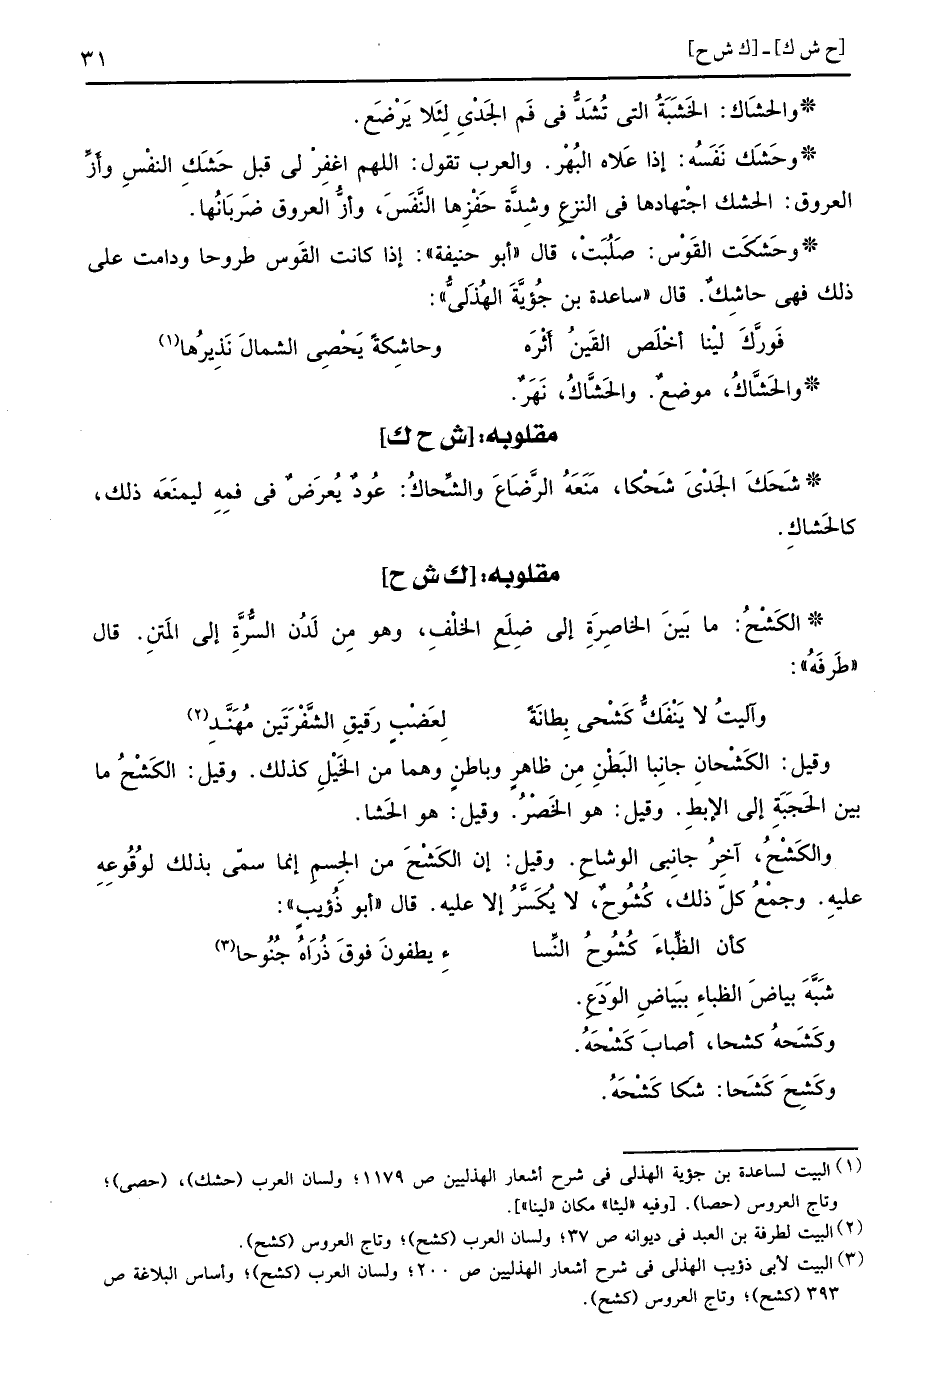 [ح ش ك] - [ك ش ح] ٣١
* والحشَاك: الخَشَبَةُ التى تُشَدُّ فى فَم الجَدْىِ لئَلا يَرْضَع.
* وحَشَك نَفَسُه: إذا عَلاه البُهْر. والعرب تقول: اللهم اغفِرْ لى قبل حَشَكِ النفْسِ وأزِّ
العروق: الحشك اجْتهادها فى النزعِ وشدَّة حَفْزِها النَّفَسَ، وأزُّ العروق ضَرَبَانُها.
* وحَشَكَت القَوْس: صَلُبَتْ، قال «أبو حنيفة»: إذا كانت القَوس طروحا ودامت على
ذلك فهى حاشِكٌ. قال «ساعدة بن جُؤيَّةَ الهُذَلىُّ»:
فَورَّكَ ليْنا أخْلَص القَينُ أثْرَه وحاشِكةً يَحْصِى الشمالَ نَذِيرُها(١)
* والحَشَّاكُ، موضعٌ. والحَشَّاكُ، نَهَرٌ.
مقلوبه: [ش ح ك]
* شَحَكَ الجَدْىَ شَحْكا، مَنَعَهُ الرَّضَاعَ والشِّحاكُ: عُودٌ يُعرَضٌ فى فمِهِ ليمنَعَه ذلك،
كالحَشاكِ.
مقلوبه: [ك ش ح]
* الكَشْحُ: ما بَينَ الخاصِرَةِ إلى ضِلَعِ الخلْف، وهو مِن لَدُن السُّرَّة إلى المَتنِ. قال
«طَرفَهُ»:
وآليتُ لا يَنْفَكُّ كَشْحى بِطانَةً لِعَضْبٍ رَقيقِ الشَّفْرَتَين مُهَنَّدِ(٢)
وقيل: الكَشْحانِ جانِبا البَطْنِ مِن ظاهرٍ وباطنٍ وهما من الخَيْلِ كذلك. وقيل: الكَشْحُ ما
بين الحَجَبَةِ إلى الإبطِ. وقيل: هو الخَصْرُ. وقيل: هو الحَشا.
والكَشْحُ، آخِرُ جانبى الوشاحِ. وقيل: إن الكَشْحَ من الجِسمِ إنما سمّى بذلك لوُقُوعِهِ
عليهِ. وجمْعُ كلّ ذلك، كُشُوحٌ، لا يُكَسَّرُ إلا عليه. قال «أبو ذُؤيبٍ»:
كأن الظِّباءَ كُشُوحُ النِّسا ءِ يطفونَ فوقَ ذُرَاهُ جُنُوحا(٣)
شَبَّهَ بياضَ الظباءِ ببَياضِ الوَدَعِ.
وكَشَحهُ كشحا، أصابَ كَشْحَهُ.
وكَشِحَ كَشَحا: شكَا كَشْحَهُ.
(١) البيت لساعدة بن جؤية الهذلى فى شرح أشعار الهذليين ص ١١٧٩؛ ولسان العرب (حشك)، (حصى)؛
وتاج العروس (حصا). [وفيه «ليثا» مكان «لينا»].
(٢) البيت لطرفة بن العبد فى ديوانه ص ٣٧؛ ولسان العرب (كشح)؛ وتاج العروس (كشح).
(٣) البيت لأبى ذؤيب الهذلى فى شرح أشعار الهذليين ص ٢٠٠؛ ولسان العرب (كشح)؛ وأساس البلاغة ص
٣٩٣ (كشح)؛ وتاج العروس (كشح).